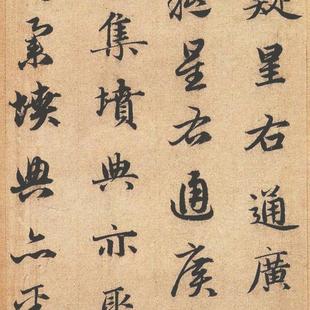 疑星右通廣
疑星右通廣
集墳典亦聚
集墳典亦聚